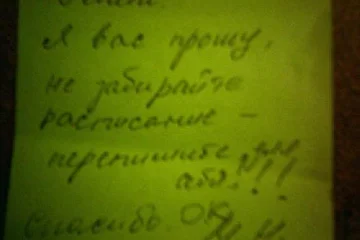 Я вас прошу,
не забирайте
расписание –
перепишите для
себя!!!
Спасибо. ОК